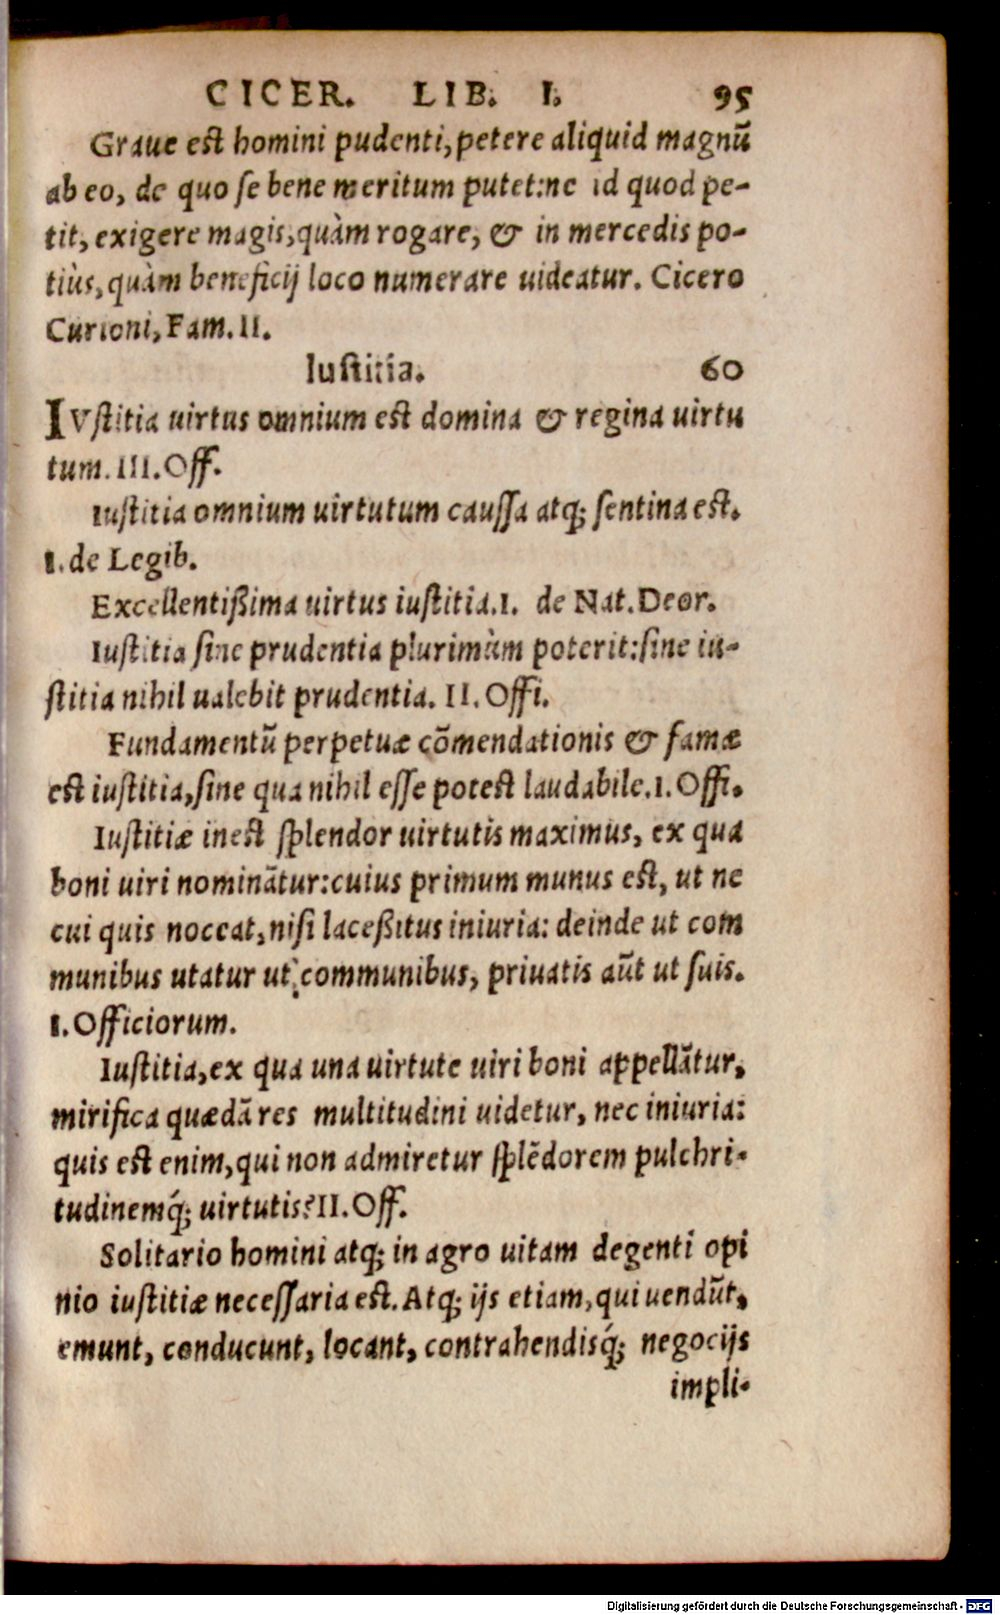 CICER. LIB. I. 95
Graue est homini pudenti, petere aliquid magnũ
ab eo, de quo se bene meritum putet: ne id quod pe-
tit, exigere magis, quàm rogare, & in mercedis po-
tiùs, quàm beneficij loco numerare uideatur. Cicero
Curioni, Fam. II.
Iustitia. 60
IVstitia uirtus omnium est domina & regina uirtu
tum. III. Off.
Iustitia omnium uirtutum caussa atq; sentina est.
I. de Legib.
Excellentißima uirtus iustitia. I. de Nat. Deor.
Iustitia sine prudentia plurimùm poterit: sine iu-
stitia nihil ualebit prudentia. II. Offi.
Fundamentũ perpetuæ cõmendationis & famæ
est iustitia, sine qua nihil esse potest laudabile. I. Offi.
Iustitiæ inest splendor uirtutis maximus, ex qua
boni uiri nominãtur: cuius primum munus est, ut ne
cui quis noceat, nisi laceßitus iniuria: deinde ut com
munibus utatur ut communibus, priuatis aũt ut suis.
I. Officiorum.
Iustitia, ex qua una uirtute uiri boni appellãtur,
mirifica quædã res multitudini uidetur, nec iniuria:
quis est enim, qui non admiretur splẽdorem pulchri-
tudinemq́; uirtutis? II. Off.
Solitario homini atq; in agro uitam degenti opi
nio iustitiæ necessaria est. Atq; ijs etiam, qui uendũt,
emunt, conducunt, locant, contrahendisq́; negocijs
impli-
Digitalisierung gefördert durch die Deutsche Forschungsgemeinschaft - DFG